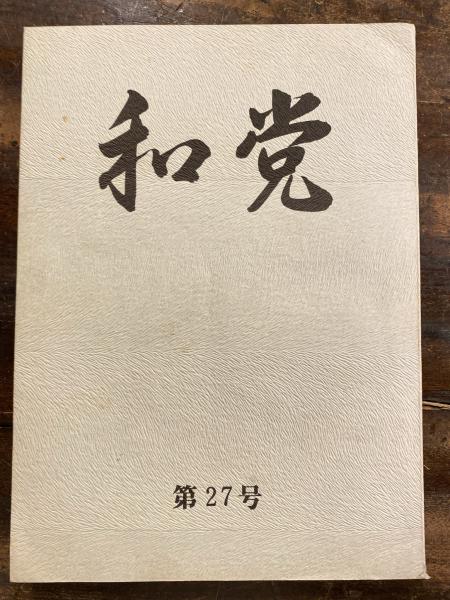 和党
第27号